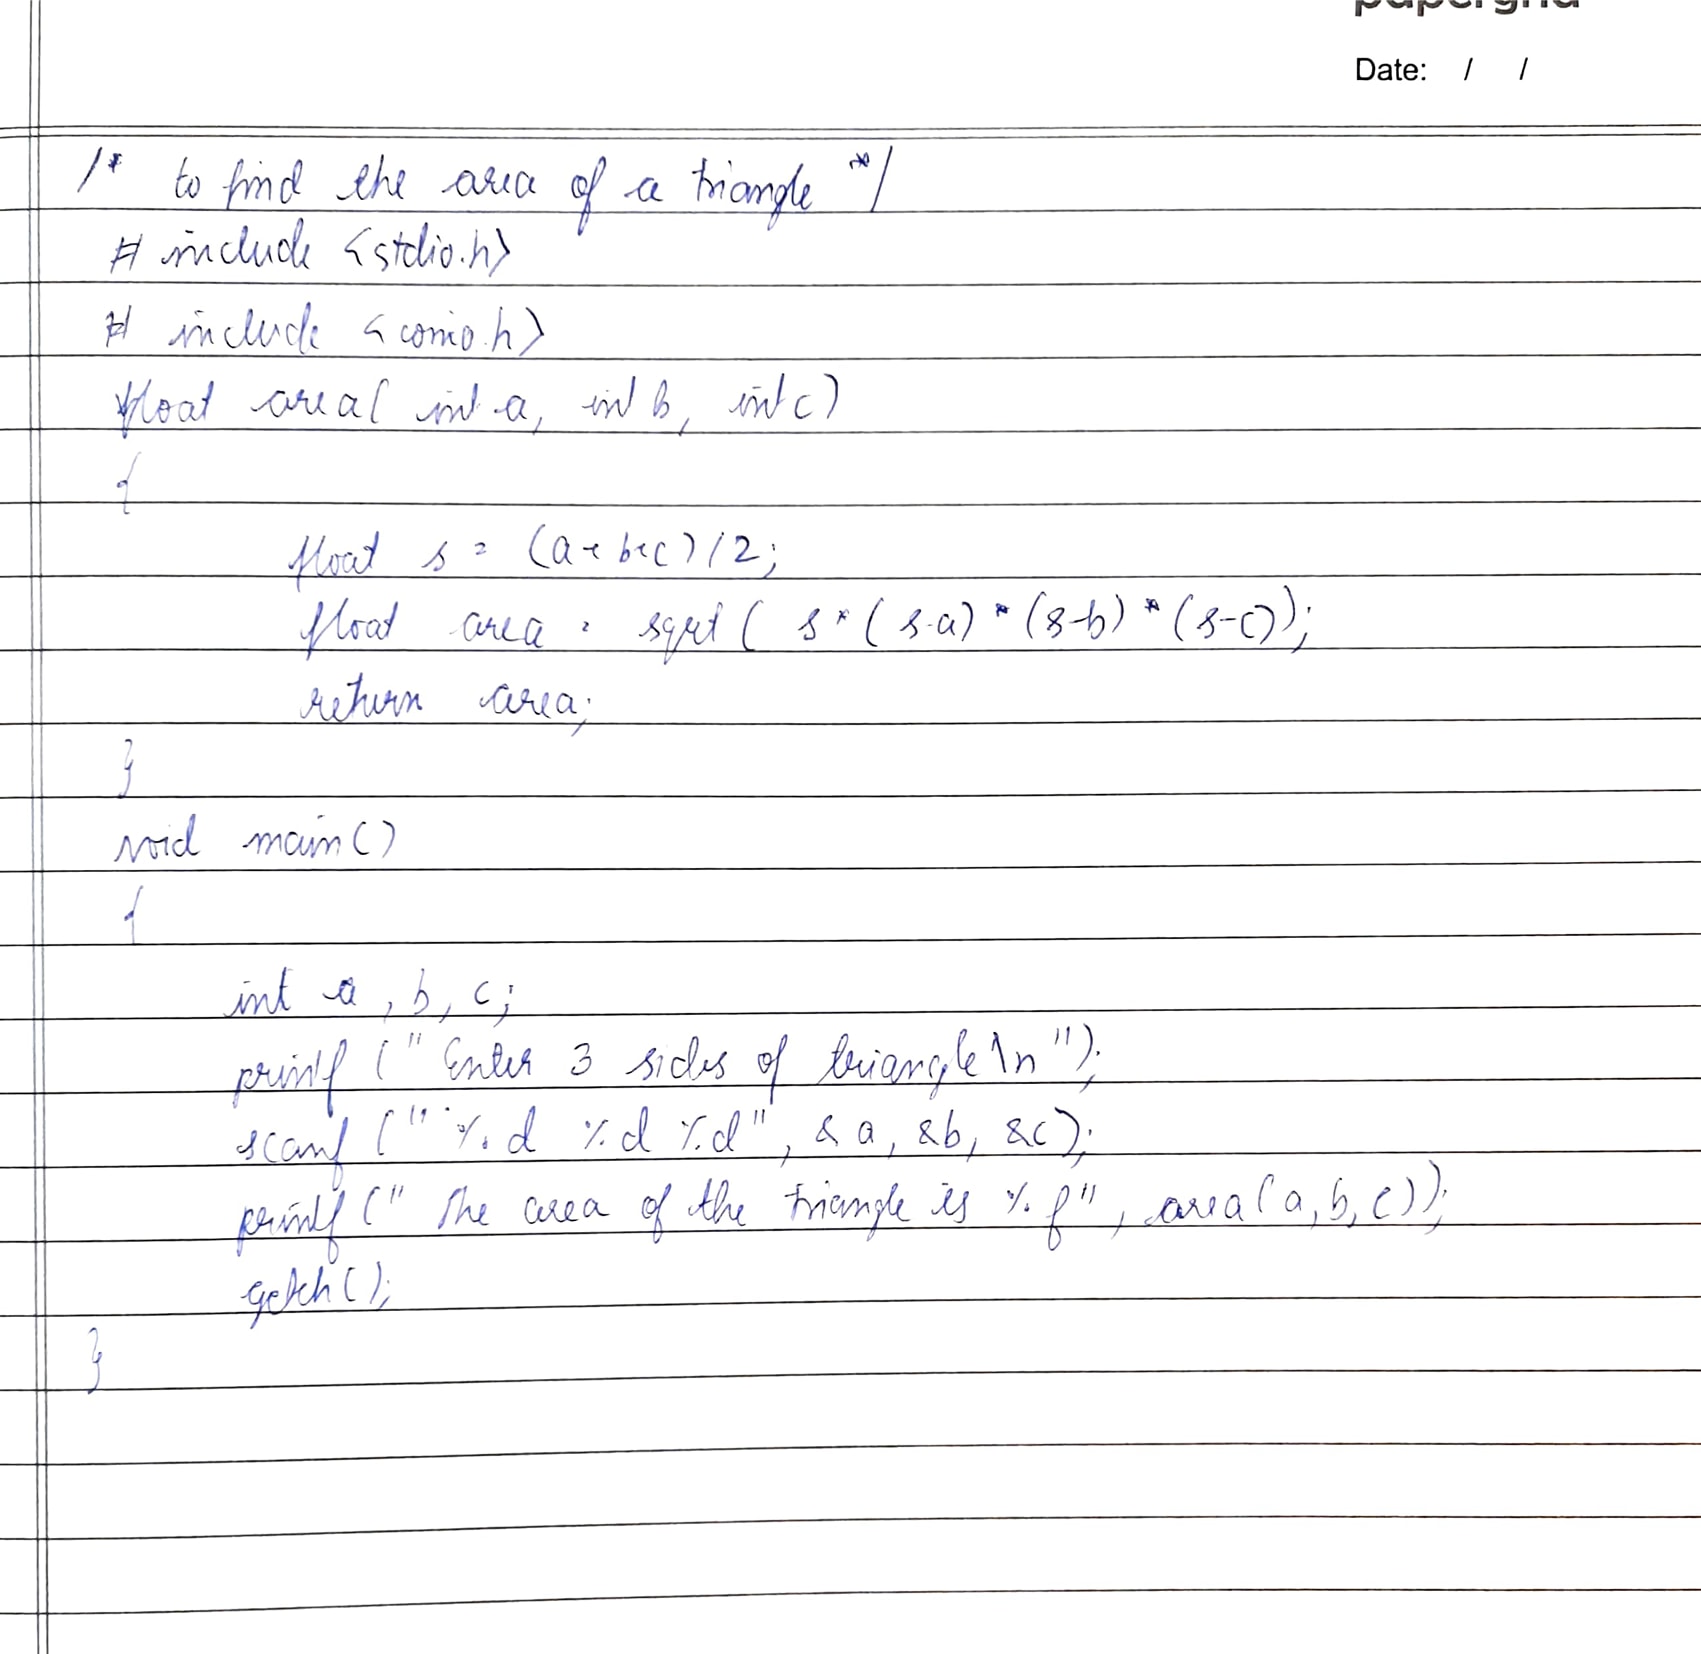 papergrid
Date: / /
/* to find the area of a triangle */
# include <stdio.h>
# include <conio.h>
float area( int a, int b, int c)
{
float s = (a+b+c)/2;
float area = sqrt ( s*(s-a)*(s-b)*(s-c));
return area;
}
void main()
{
int a, b, c;
printf (" Enter 3 sides of triangle\n");
scanf (" %d %d %d", &a, &b, &c);
printf (" The area of the triangle is %f", area(a,b,c));
getch();
}